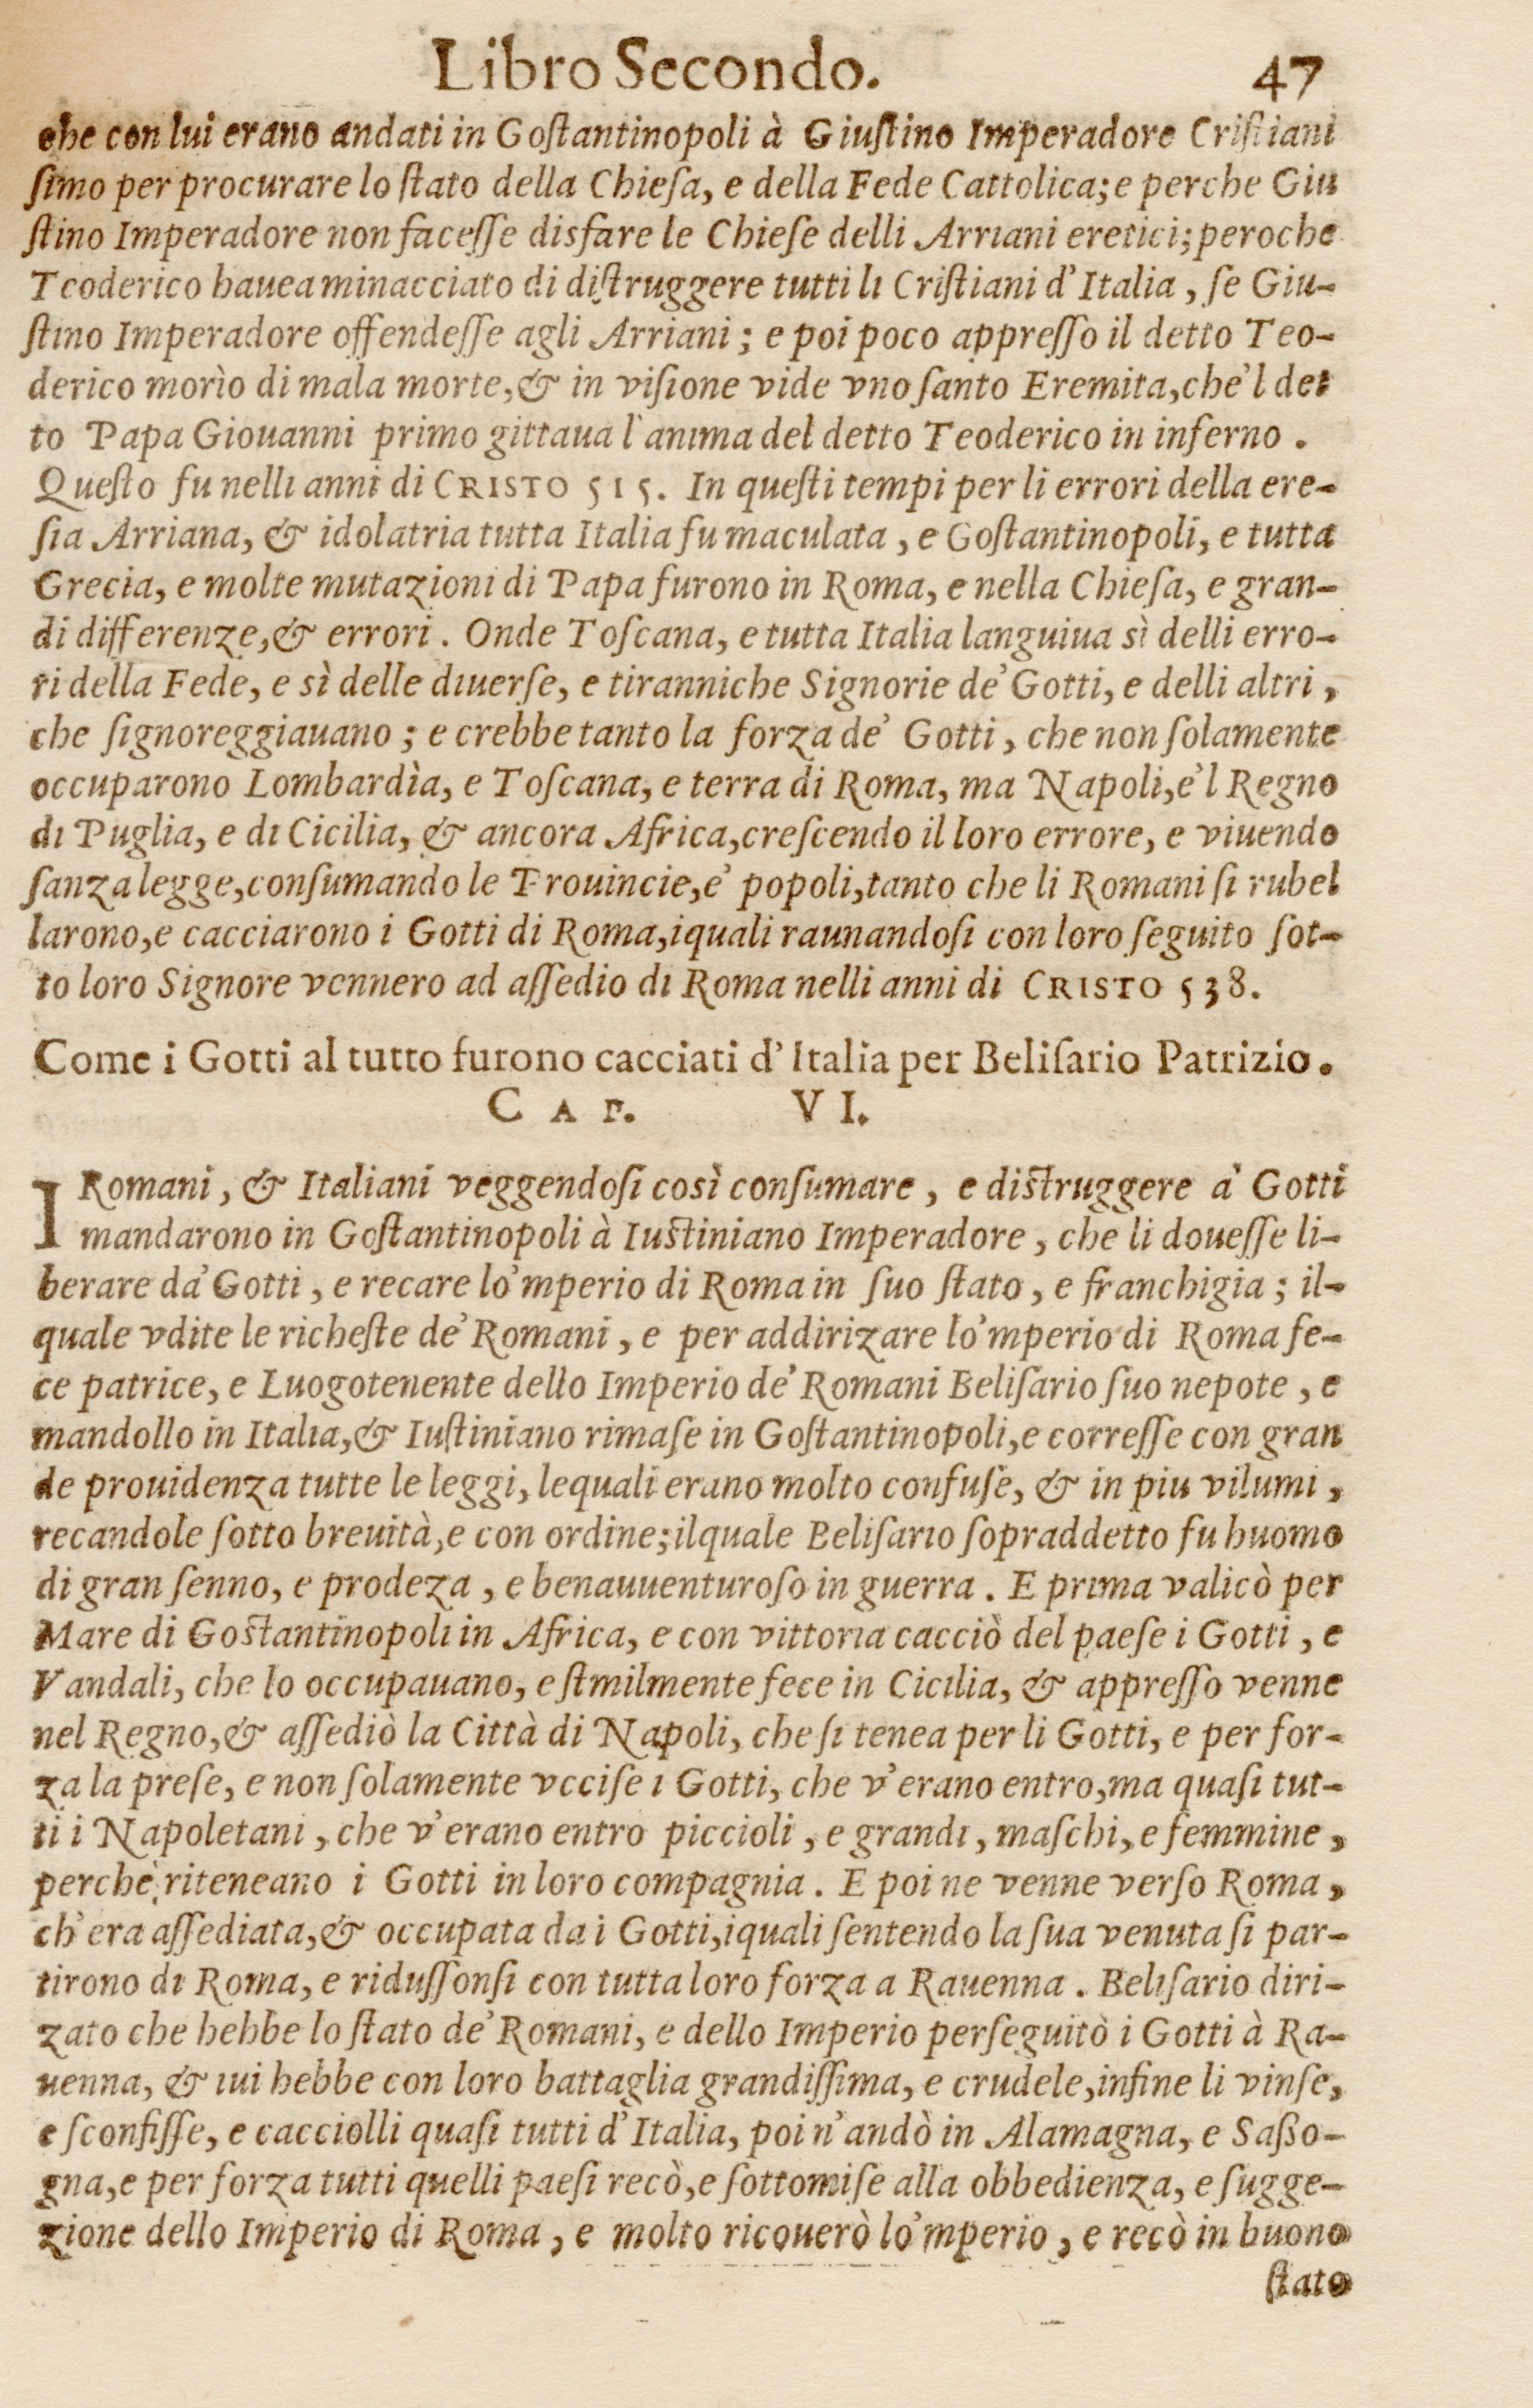 Libro Secondo. 47
che con lui erano andati in Goſtantinopoli à Giuſtino Imperadore Criſtiani
ſimo per procurare lo ſtato della Chieſa, e della Fede Cattolica; e perche Giu
ſtino Imperadore non faceſſe disfare le Chieſe delli Arriani eretici; peroche
Teoderico hauea minacciato di diſtruggere tutti li Criſtiani d'Italia, ſe Giu-
ſtino Imperadore offendeſſe agli Arriani; e poi poco appreſſo il detto Teo-
derico morìo di mala morte, & in viſione vide vno ſanto Eremita, che'l det
to Papa Giouanni primo gittaua l'anima del detto Teoderico in inferno.
Queſto fu nelli anni di CRISTO 515. In queſti tempi per li errori della ere-
ſia Arriana, & idolatria tutta Italia fu maculata, e Goſtantinopoli, e tutta
Grecia, e molte mutazioni di Papa furono in Roma, e nella Chieſa, e gran-
di differenze, & errori. Onde Toſcana, e tutta Italia languiua sì delli erro-
ri della Fede, e sì delle diuerſe, e tiranniche Signorie de' Gotti, e delli altri,
che ſignoreggiauano; e crebbe tanto la forza de' Gotti, che non ſolamente
occuparono Lombardìa, e Toſcana, e terra di Roma, ma Napoli, e'l Regno
di Puglia, e di Cicilia, & ancora Africa, creſcendo il loro errore, e viuendo
ſanza legge, conſumando le Prouincie, e' popoli, tanto che li Romani ſi rubel
larono, e cacciarono i Gotti di Roma, iquali raunandoſi con loro ſeguito ſot-
to loro Signore vennero ad aſſedio di Roma nelli anni di CRISTO 538.
Come i Gotti al tutto furono cacciati d'Italia per Beliſario Patrizio.
CAP. VI.
I Romani, & Italiani veggendoſi così conſumare, e diſtruggere a' Gotti
mandarono in Goſtantinopoli à Iuſtiniano Imperadore, che li doueſſe li-
berare da' Gotti, e recare lo'mperio di Roma in ſuo ſtato, e franchigia; il-
quale vdite le richeſte de' Romani, e per addirizare lo'mperio di Roma fe-
ce patrice, e Luogotenente dello Imperio de' Romani Beliſario ſuo nepote, e
mandollo in Italia, & Iuſtiniano rimaſe in Goſtantinopoli, e correſſe con gran
de prouidenza tutte le leggi, lequali erano molto confuſe, & in piu vilumi,
recandole ſotto breuità, e con ordine; ilquale Beliſario ſopraddetto fu huomo
di gran ſenno, e prodeza, e benauuenturoſo in guerra. E prima valicò per
Mare di Goſtantinopoli in Africa, e con vittoria cacciò del paeſe i Gotti, e
Vandali, che lo occupauano, e ſtmilmente fece in Cicilia, & appreſſo venne
nel Regno, & aſſediò la Città di Napoli, che ſi tenea per li Gotti, e per for-
za la preſe, e non ſolamente vcciſe i Gotti, che v'erano entro, ma quaſi tut-
ti i Napoletani, che v'erano entro piccioli, e grandi, maſchi, e femmine,
perchè riteneano i Gotti in loro compagnia. E poi ne venne verſo Roma,
ch'era aſſediata, & occupata da i Gotti, iquali ſentendo la ſua venuta ſi par-
tirono di Roma, e riduſſonſi con tutta loro forza a Rauenna. Beliſario diri-
zato che hebbe lo ſtato de' Romani, e dello Imperio perſeguitò i Gotti à Ra-
uenna, & iui hebbe con loro battaglia grandiſſima, e crudele, infine li vinſe,
e ſconfiſſe, e cacciolli quaſi tutti d'Italia, poi n'andò in Alamagna, e Saßo-
gna, e per forza tutti quelli paeſi recò, e ſottomiſe alla obbedienza, e ſugge-
zione dello Imperio di Roma, e molto ricouerò lo'mperio, e recò in buono
ſtato